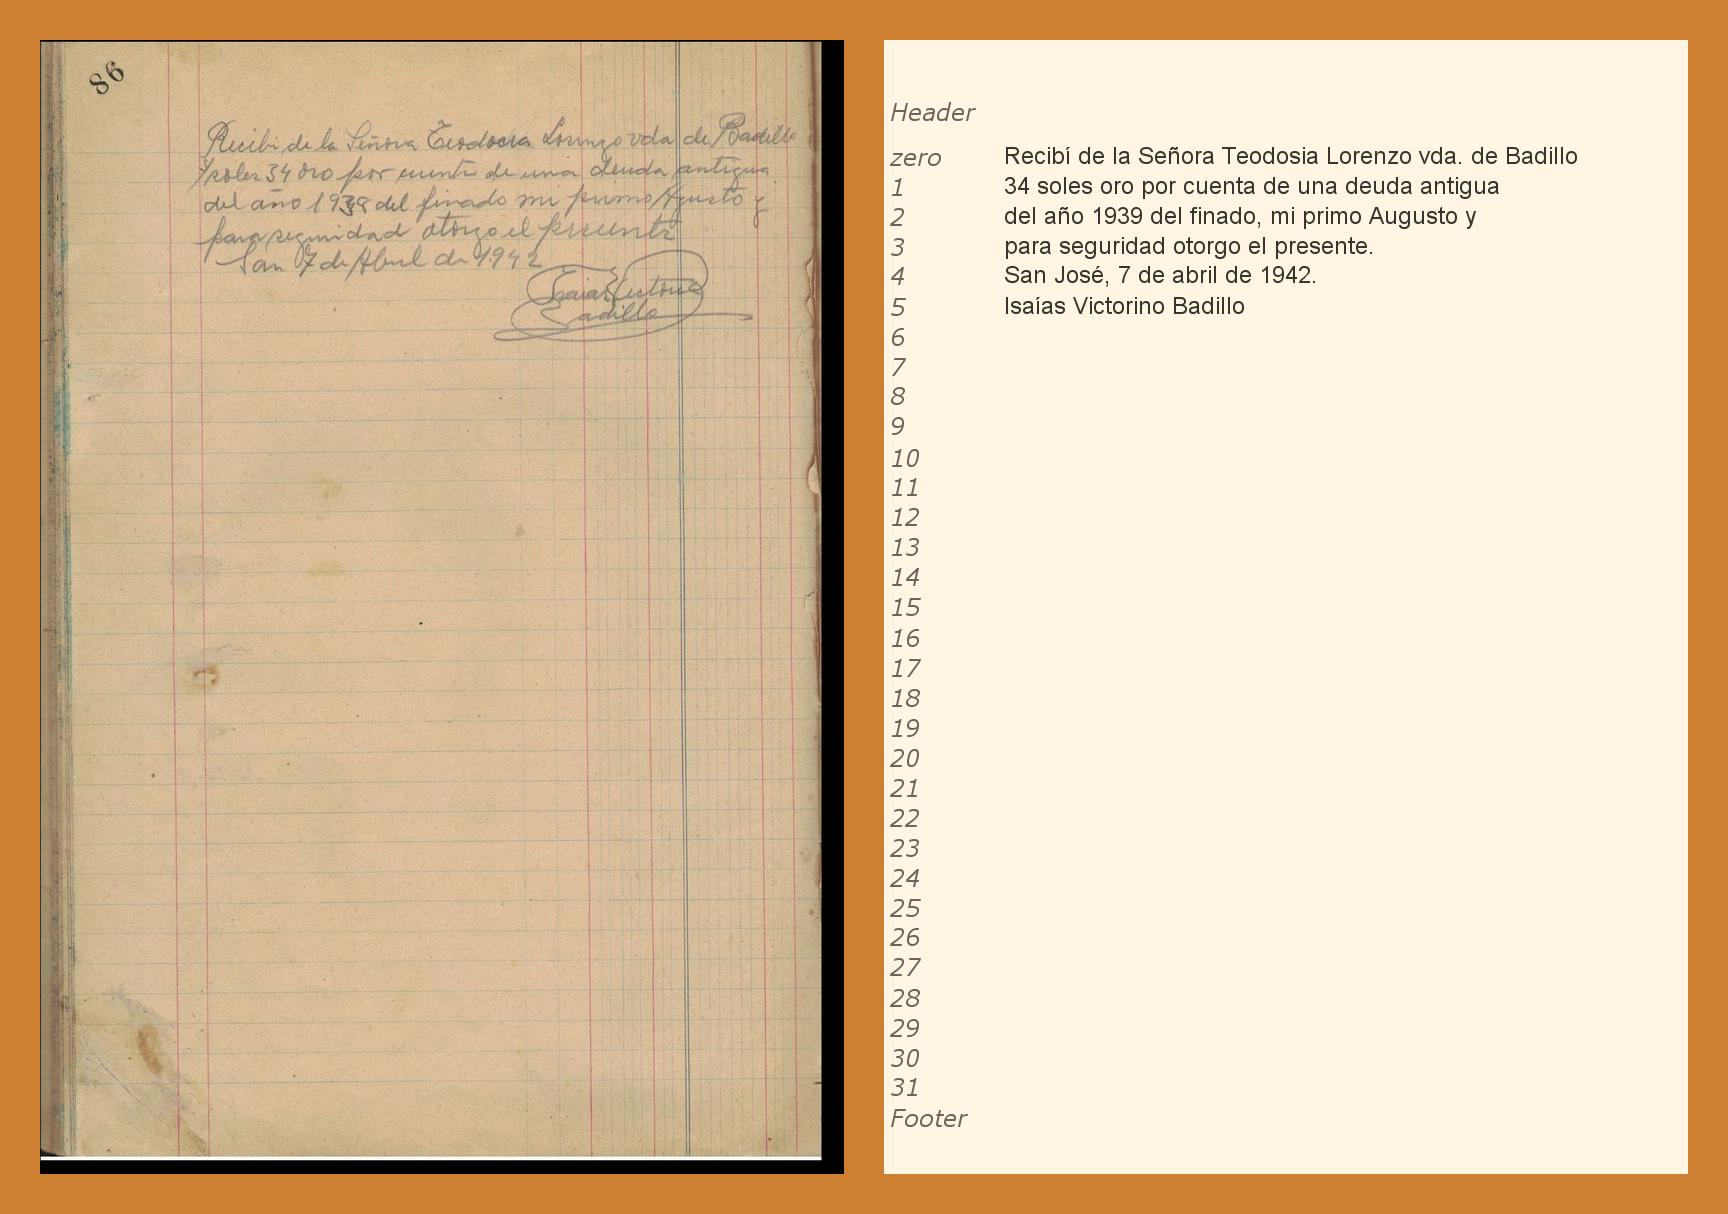 86
Recibi de la Señora Teodocia Lorenzo vda de Badillo
soles 34 oro por cuenta de una deuda antigua
del año 1939 del finado mi primo Agusto y
para seguridad otorgo el presente
San 7 de Abril de 1942
Isaias Victorino
Badillo
Header
zero Recibí de la Señora Teodosia Lorenzo vda. de Badillo
1 34 soles oro por cuenta de una deuda antigua
2 del año 1939 del finado, mi primo Augusto y
3 para seguridad otorgo el presente.
4 San José, 7 de abril de 1942.
5 Isaías Victorino Badillo
6
7
8
9
10
11
12
13
14
15
16
17
18
19
20
21
22
23
24
25
26
27
28
29
30
31
Footer